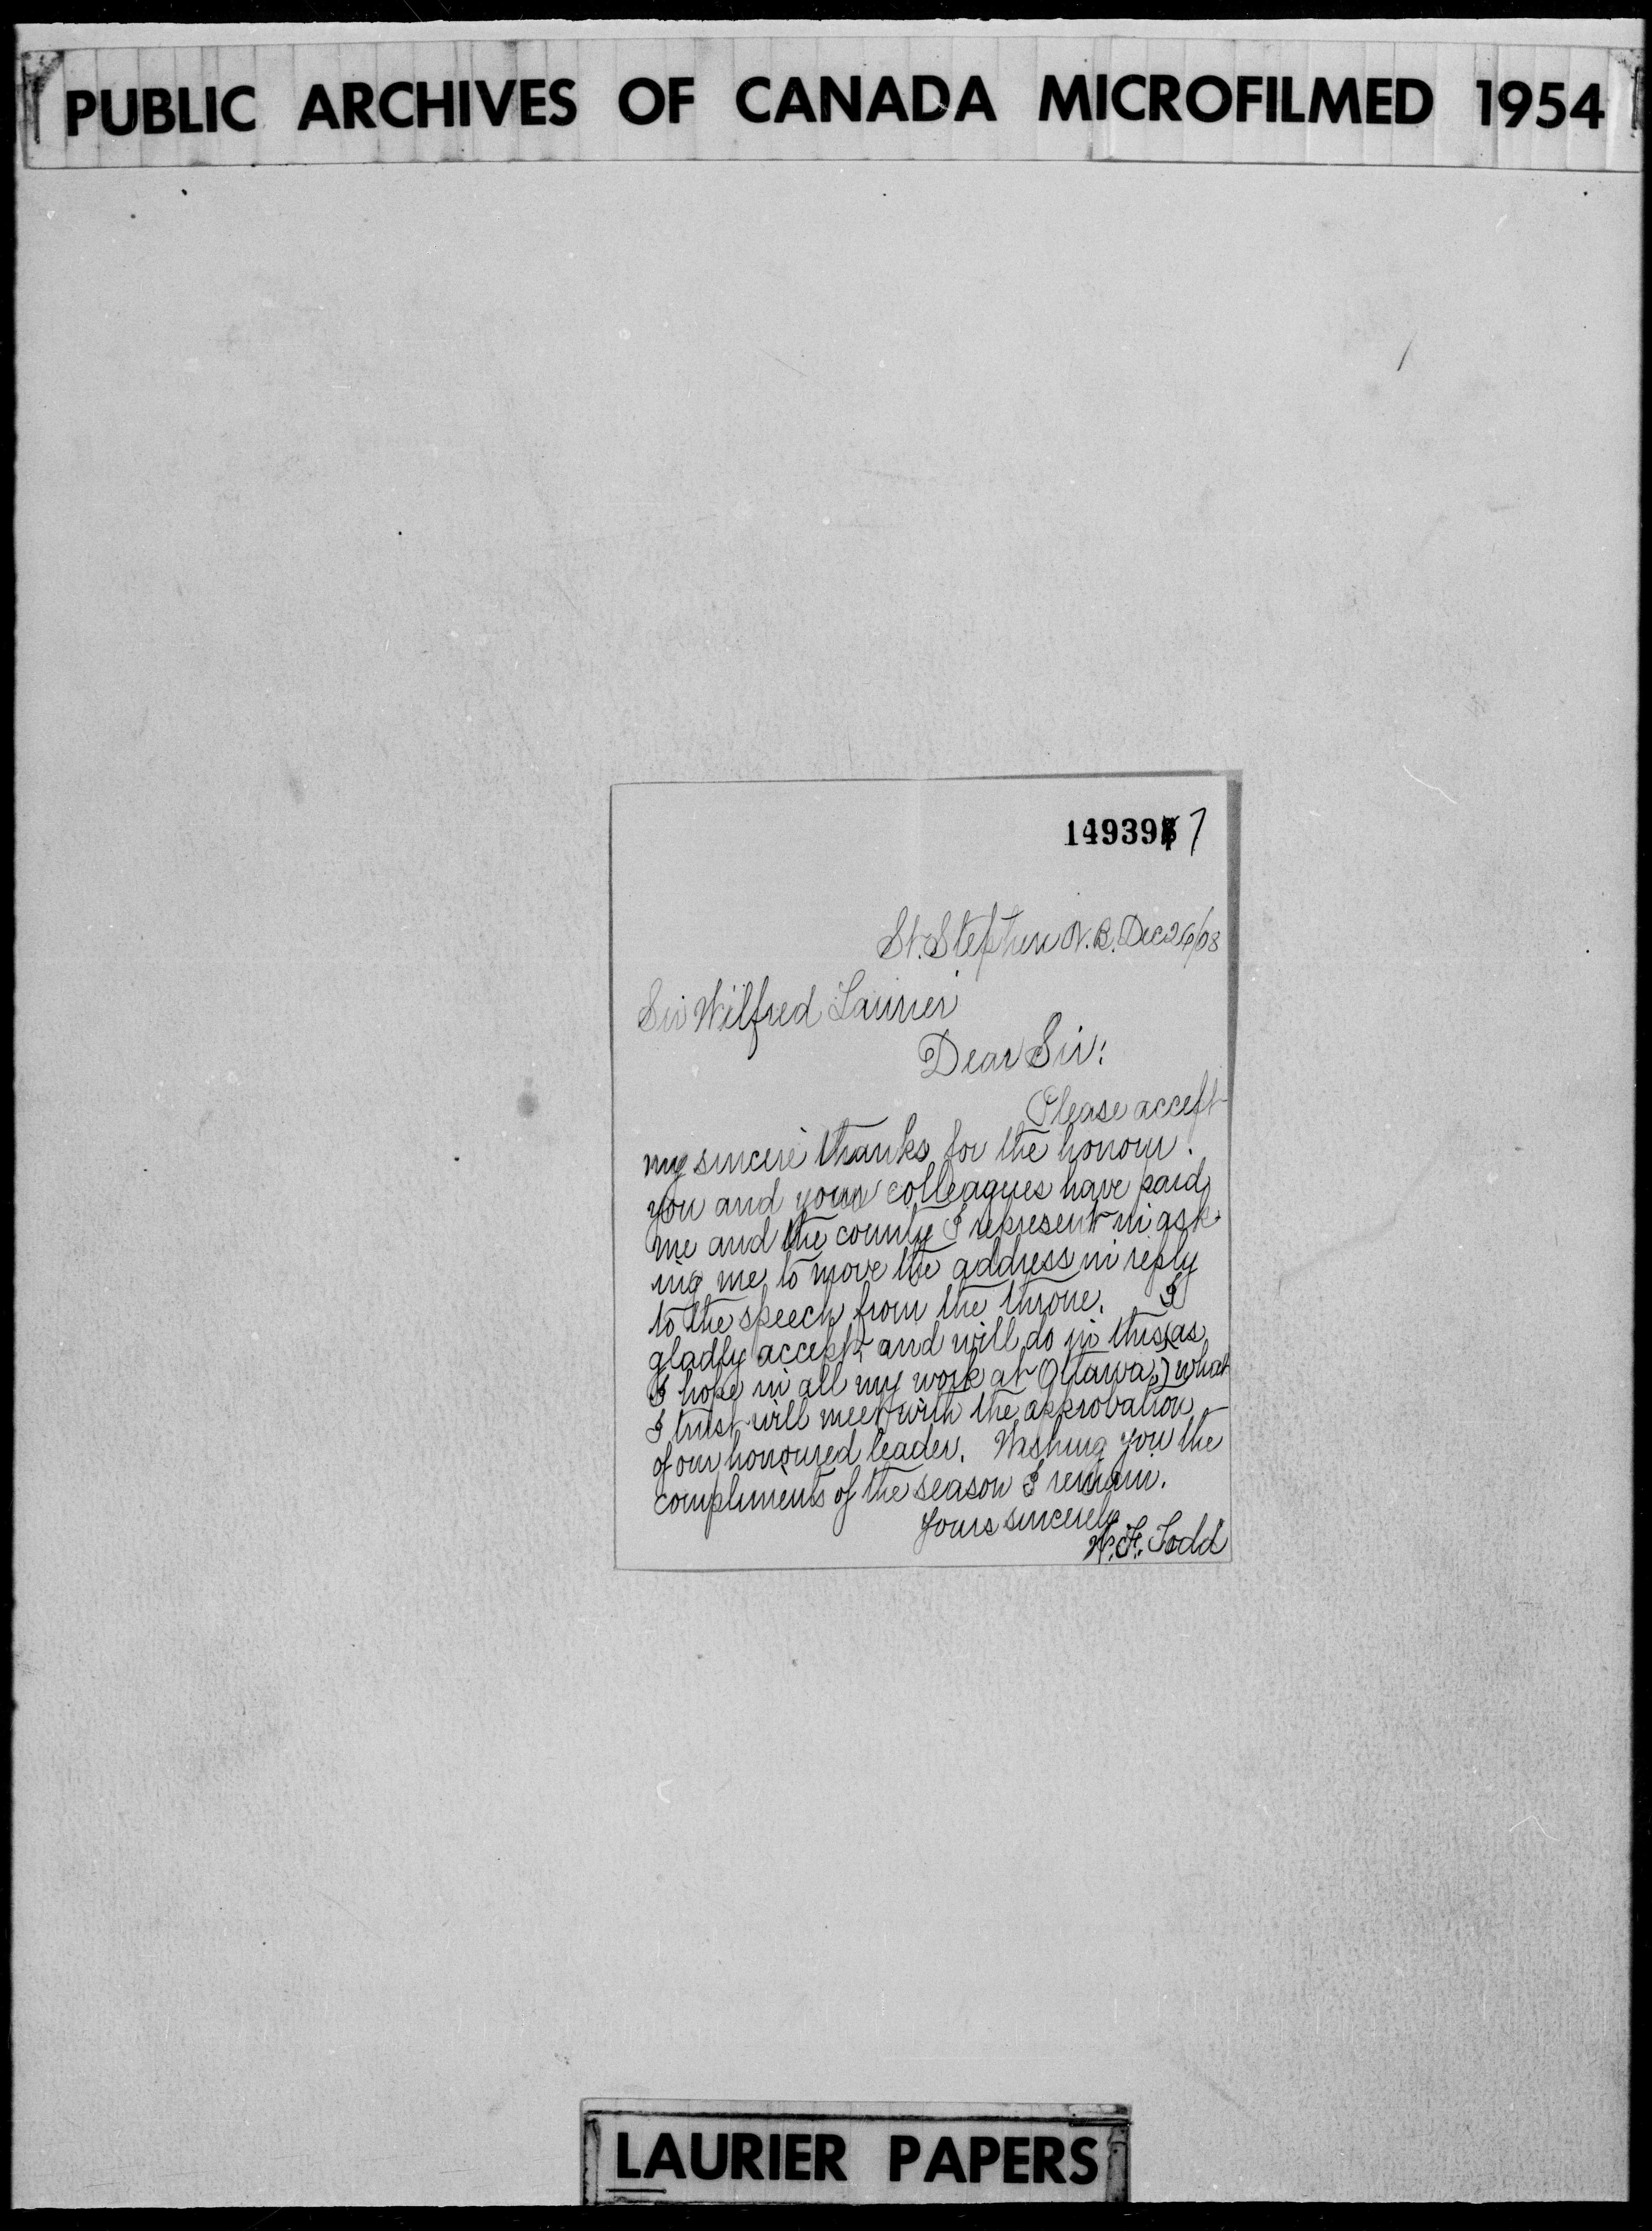 PUBLIC ARCHIVES OF CANADA MICROFILMED 1954
149397
St. Stephen N.B. Dec 26/08
Sir Wilfred Laurier
Dear Sir:
Please accept
my sincere thanks for the honour
you and your colleagues have paid
me and the county I represent in ask-
ing me to move the address in reply
to the speech from the throne. I
gladly accept, and will do in this (as
I hope in all my work at Ottawa,) what
I trust will meet with the approbation
of our honoured leader. Wishing you the
compliments of the season I remain.
Yours sincerely
W. F. Todd
LAURIER PAPERS